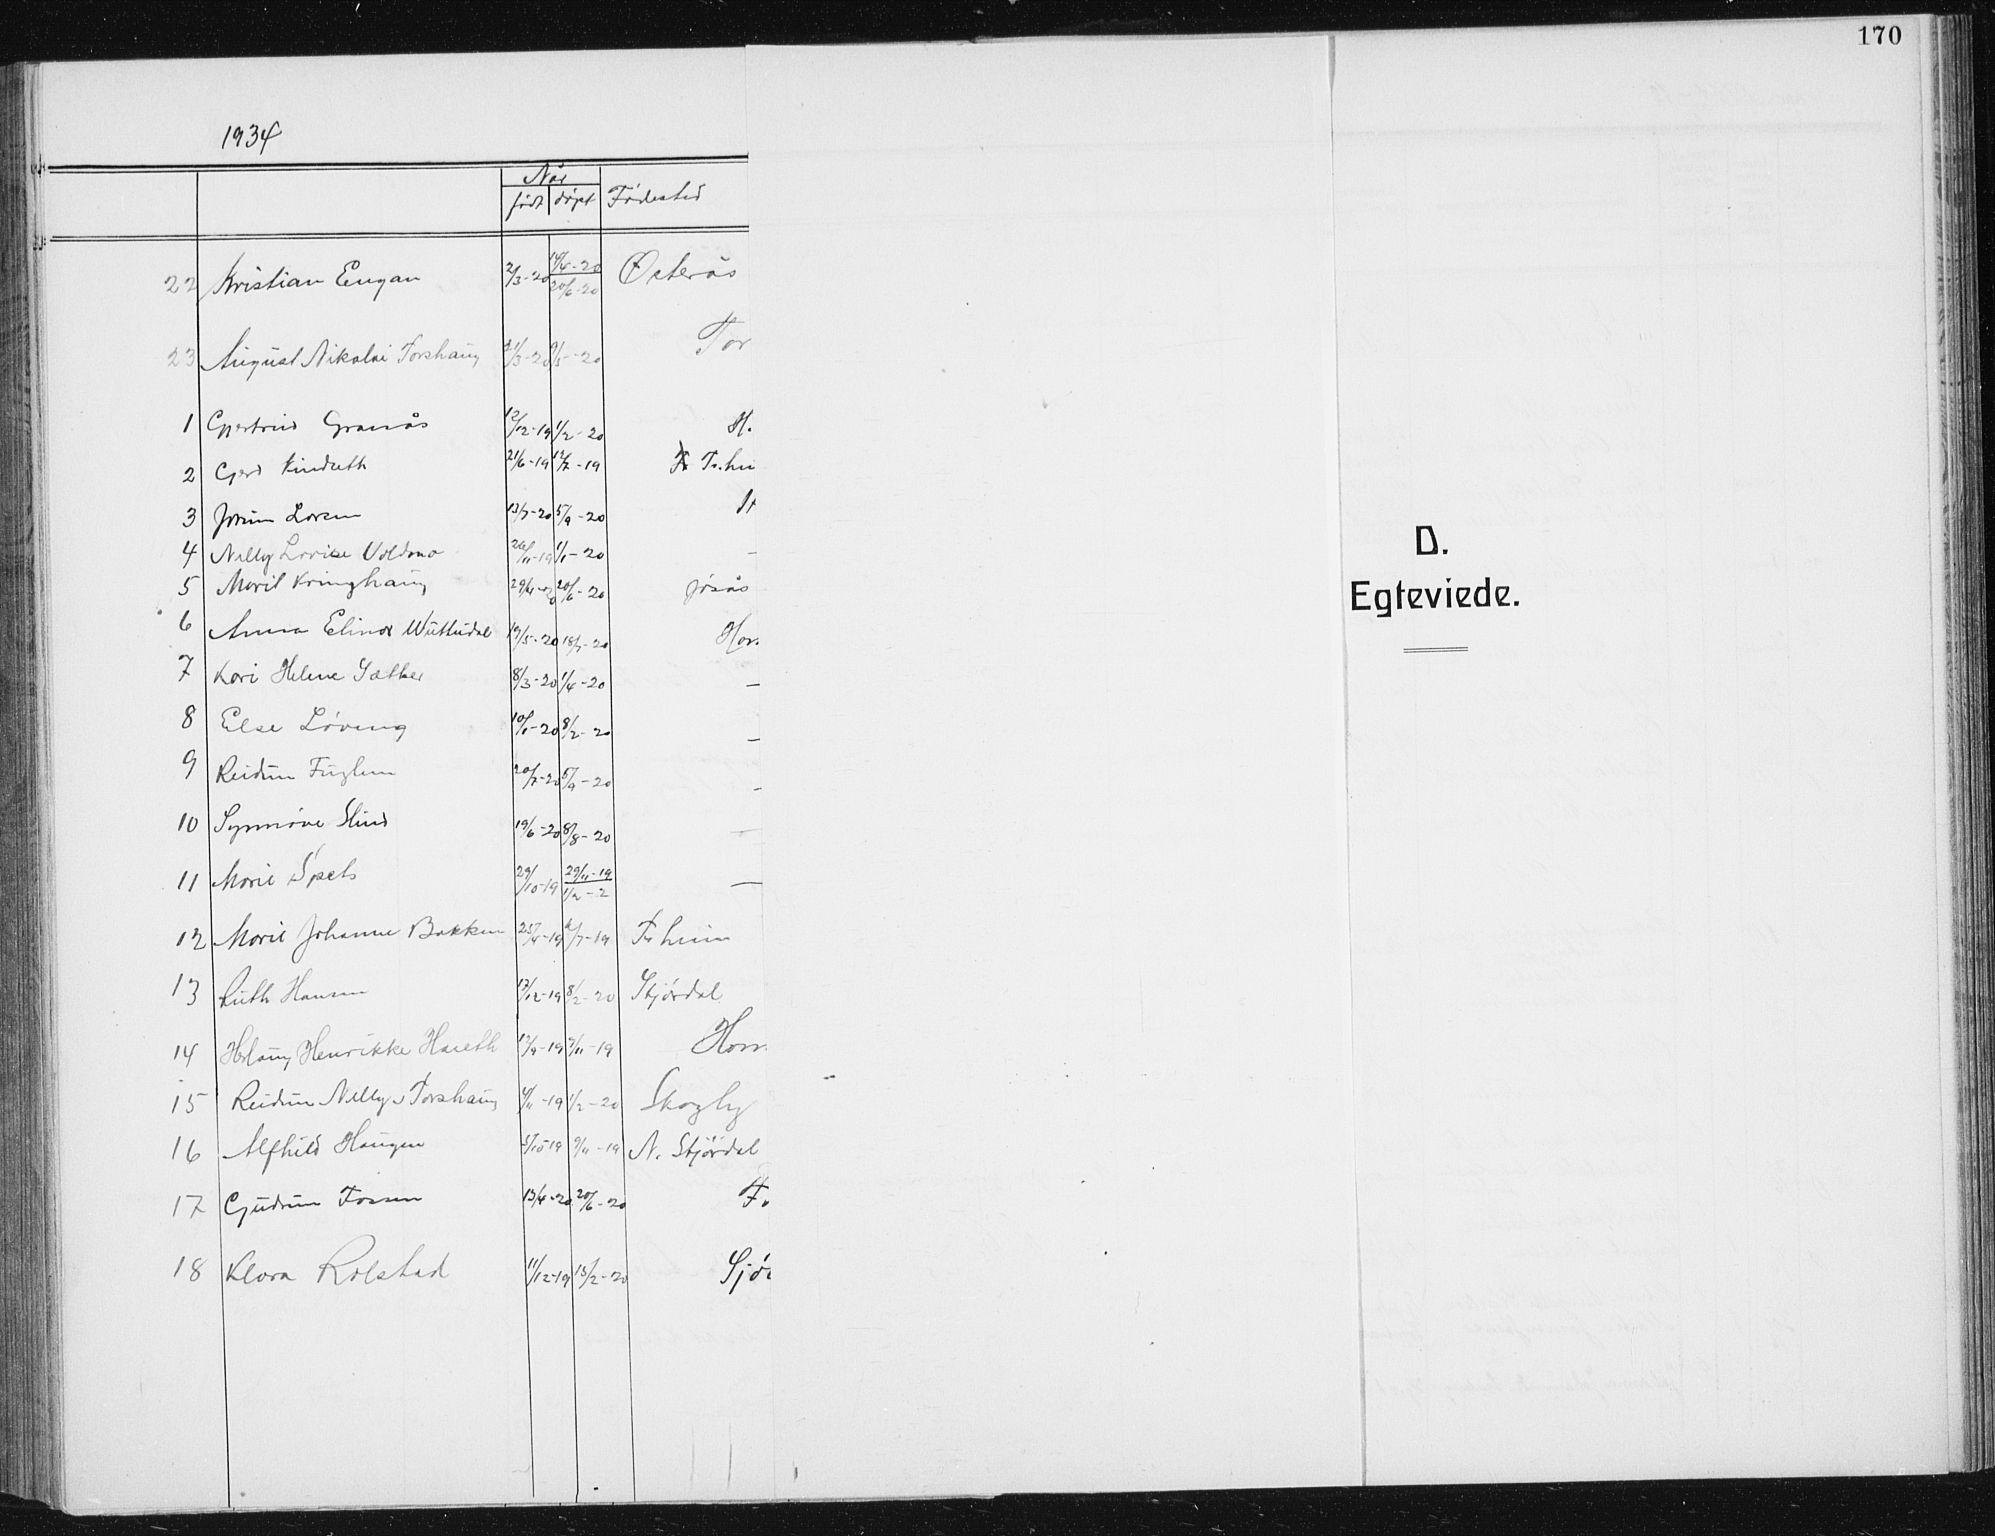 170
1934
Når
født døpt Fødested
22 Kristian Eugan 2/3-20 14/4-20 20/6-20 Østerås
23 August Nikolai Forshaug 21/3-20 9/5-20 For
1 Gjertrud Granås 12/12-19 1/2-20 H.
2 Gerd Kindseth 21/6-19 12/7-19 Tr.hei
3 Jorun Larsen 13/7-20 5/9-20 H
4 Nelly Lovise Voldmo 26/11-19 1/1-20 —
5 Marit Kringhaug 29/4-20 20/6-20 Jøsås
6 Anna Elinor Wuttudal 19/5-20 18/7-20 Hom
7 Kari Helene Sæther 8/3-20 1/4-20 —
8 Else Løving 10/1-20 8/2-20 —
9 Reidun Fuglem 20/7-20 5/9-20 —
10 Synnøve Slind 19/6-20 8/8-20 —
11 Marie Spets 29/10-19 29/11-19 1/2-2 —
12 Marie Johanne Bakken 25/4-19 6/7-19 Tr.heim
13 Ruth Hansen 17/12-19 8/2-20 Stjørdal
14 Herlaug Henrikke Haseth 17/9-19 9/11-19 Hom
15 Reidun Nelly Forshaug 4/11-19 1/2-20 Skogly
16 Alfhild Haugen 5/10-19 9/11-19 N. Stjørdal
17 Gudrun Fossen 13/4-20 20/6-20 F.
18 Klara Rolstad 11/12-19 15/2-20 Sjø
D.
Egteviede.